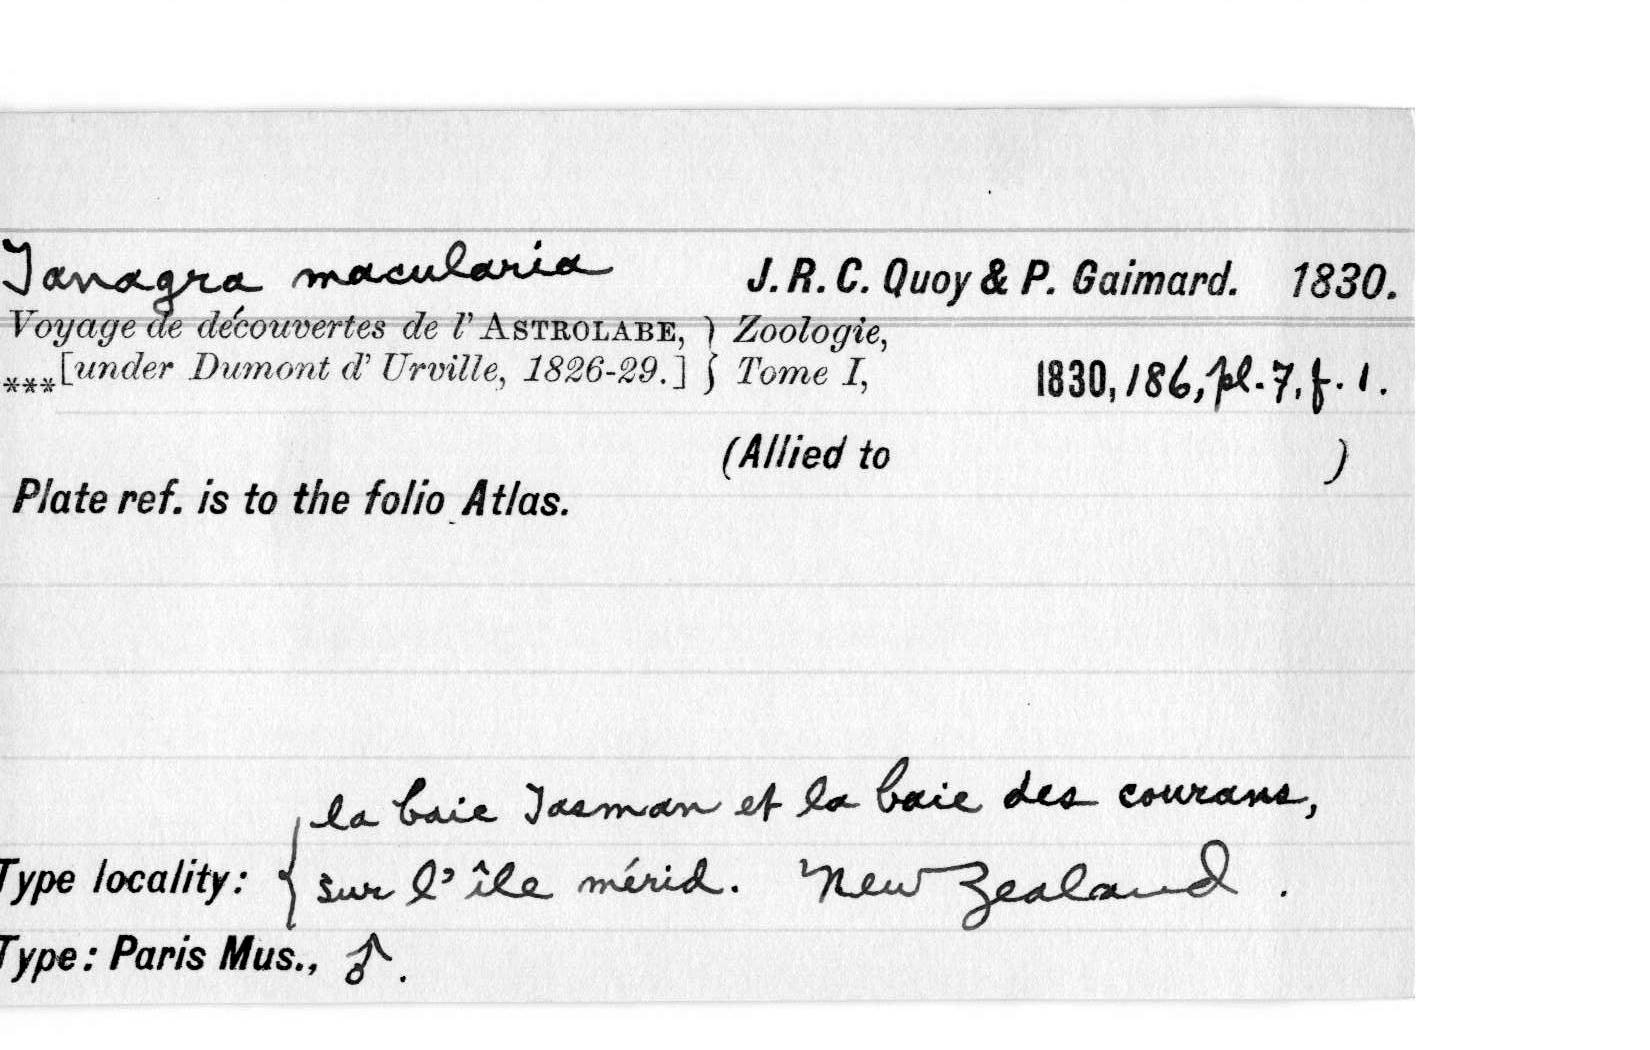 Tanagra macularia J. R. C. Quoy & P. Gaimard. 1830.
Voyage de découvertes de l' ASTROLABE, } Zoologie,
***[under Dumont d' Urville, 1826-29.] } Tome I, 1830, 186, pl. 7, f. 1.
(Allied to )
Plate ref. is to the folio Atlas.
la baie Tasman et la baie des courans,
Type locality: { sur l'île mérid. New Zealand.
Type: Paris Mus., ♂.